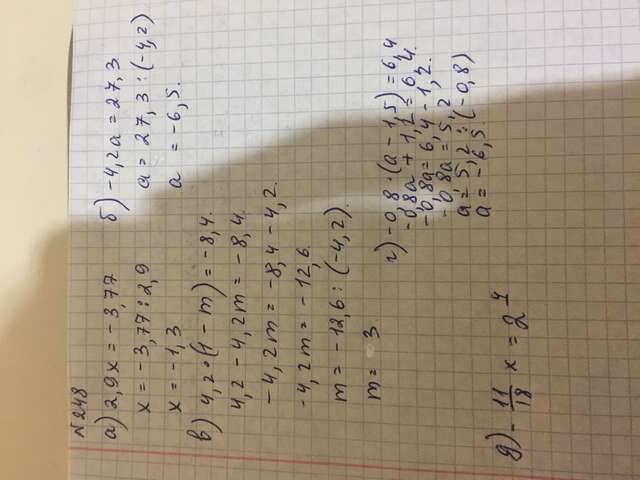 №248
а) 2,9x = -3,77
x = -3,77 : 2,9
x = -1,3
б) -4,2a = 27,3
a = 27,3 : (-4,2)
a = -6,5.
в) 4,2·(1-m) = -8,4.
4,2 - 4,2m = -8,4.
-4,2m = -8,4 - 4,2.
-4,2m = -12,6.
m = -12,6 : (-4,2).
m = 3
г) -0,8·(a-1,5) = 6,4
-0,8a + 1,2 = 6,4.
-0,8a = 6,4 - 1,2.
-0,8a = 5,2,
a = 5,2 : (-0,8)
a = -6,5
д) -11/18 x = 2